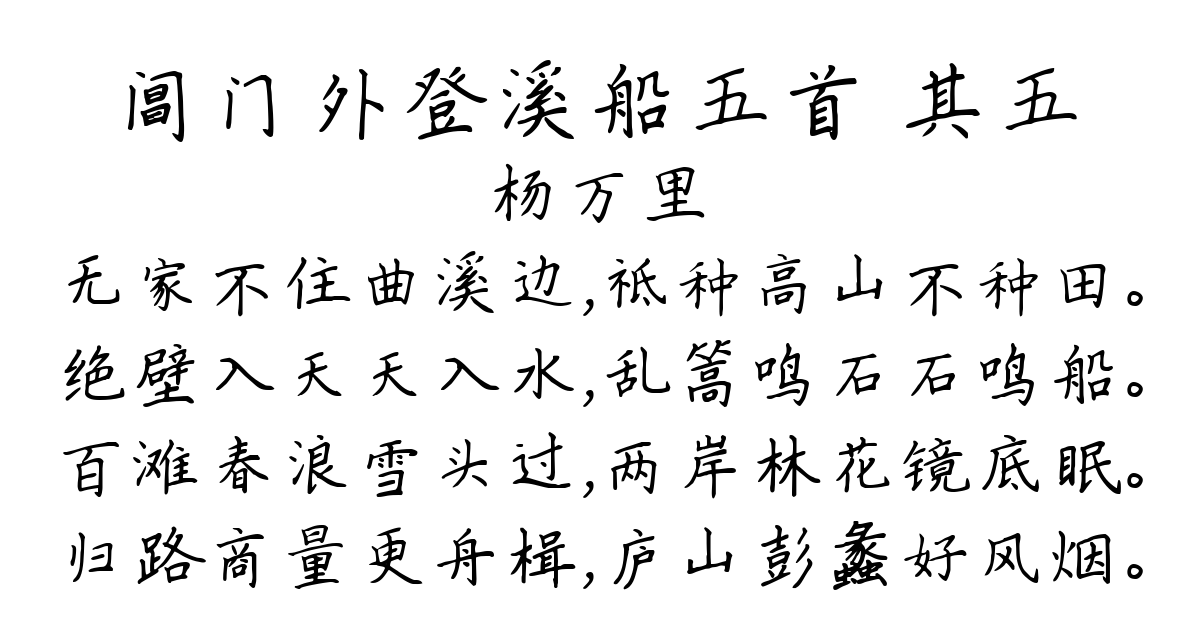 阊门外登溪船五首 其五
杨万里
无家不住曲溪边,祗种高山不种田。
绝壁入天天入水,乱篙鸣石石鸣船。
百滩春浪雪头过,两岸林花镜底眠。
归路商量更舟楫,庐山彭蠡好风烟。